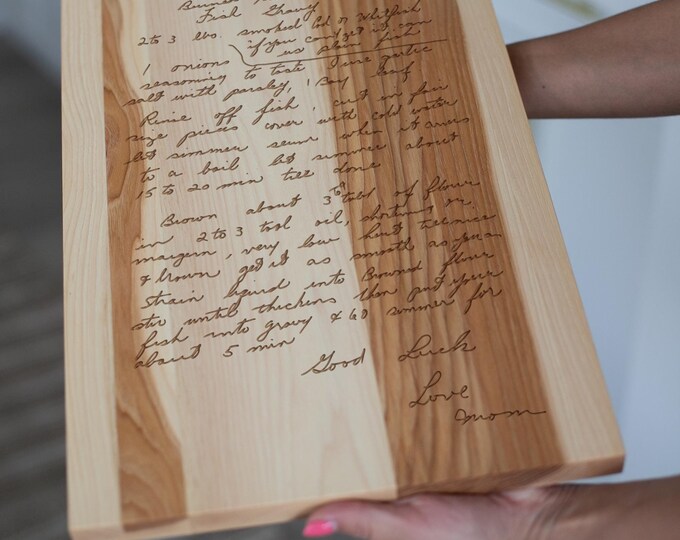 Fish Gravy
2 to 3 lbs. smoked Cod or Whitfish
if you can get if can
1 onions us plain fish
seasoning to taste I use garlic
salt with parsley, 1 Bay leaf
Rinse off fish, cut in fair
size pieces cover with cold water
let simmer when it comes
to a boil let simmer about
15 to 20 min till done
Brown about 3 to tabl of flour
in 2 to 3 tbl oil, shortning or,
margern, very low heat
& brown get it as smooth as you can
Strain liquid into Browned flour
stir until thickens then put your
fish into gravy & Go simmer for
about 5 min
Good Luck
Love
Mom